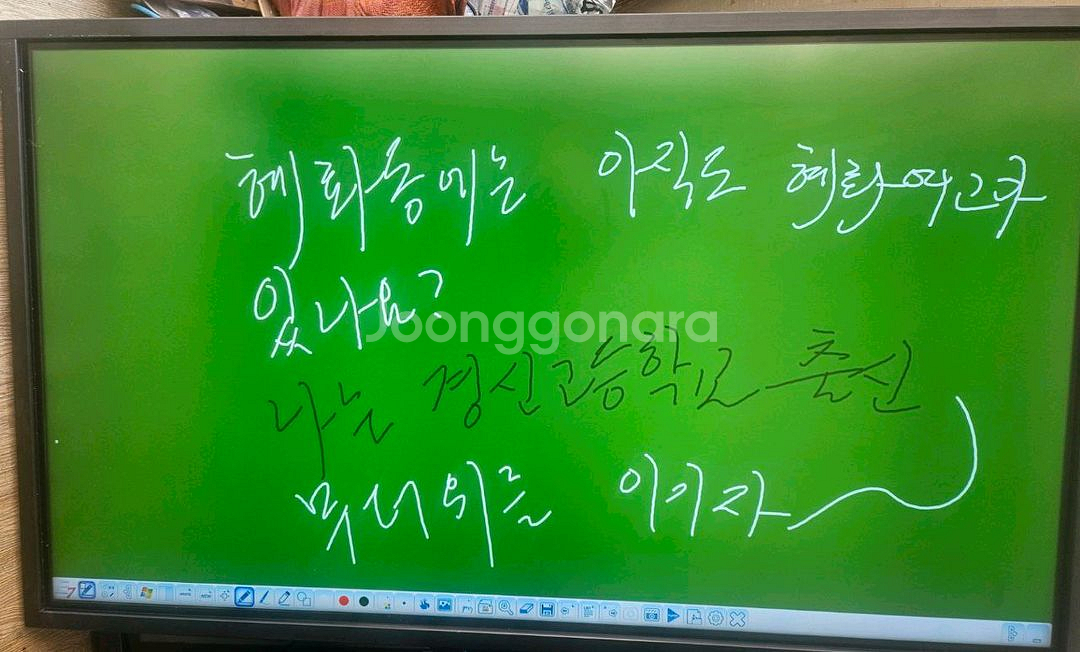 혜화동에는 아직도 혜화여고가
있나요?
Joonggonara
나는 경신고등학교 출신
무더위를 이기자